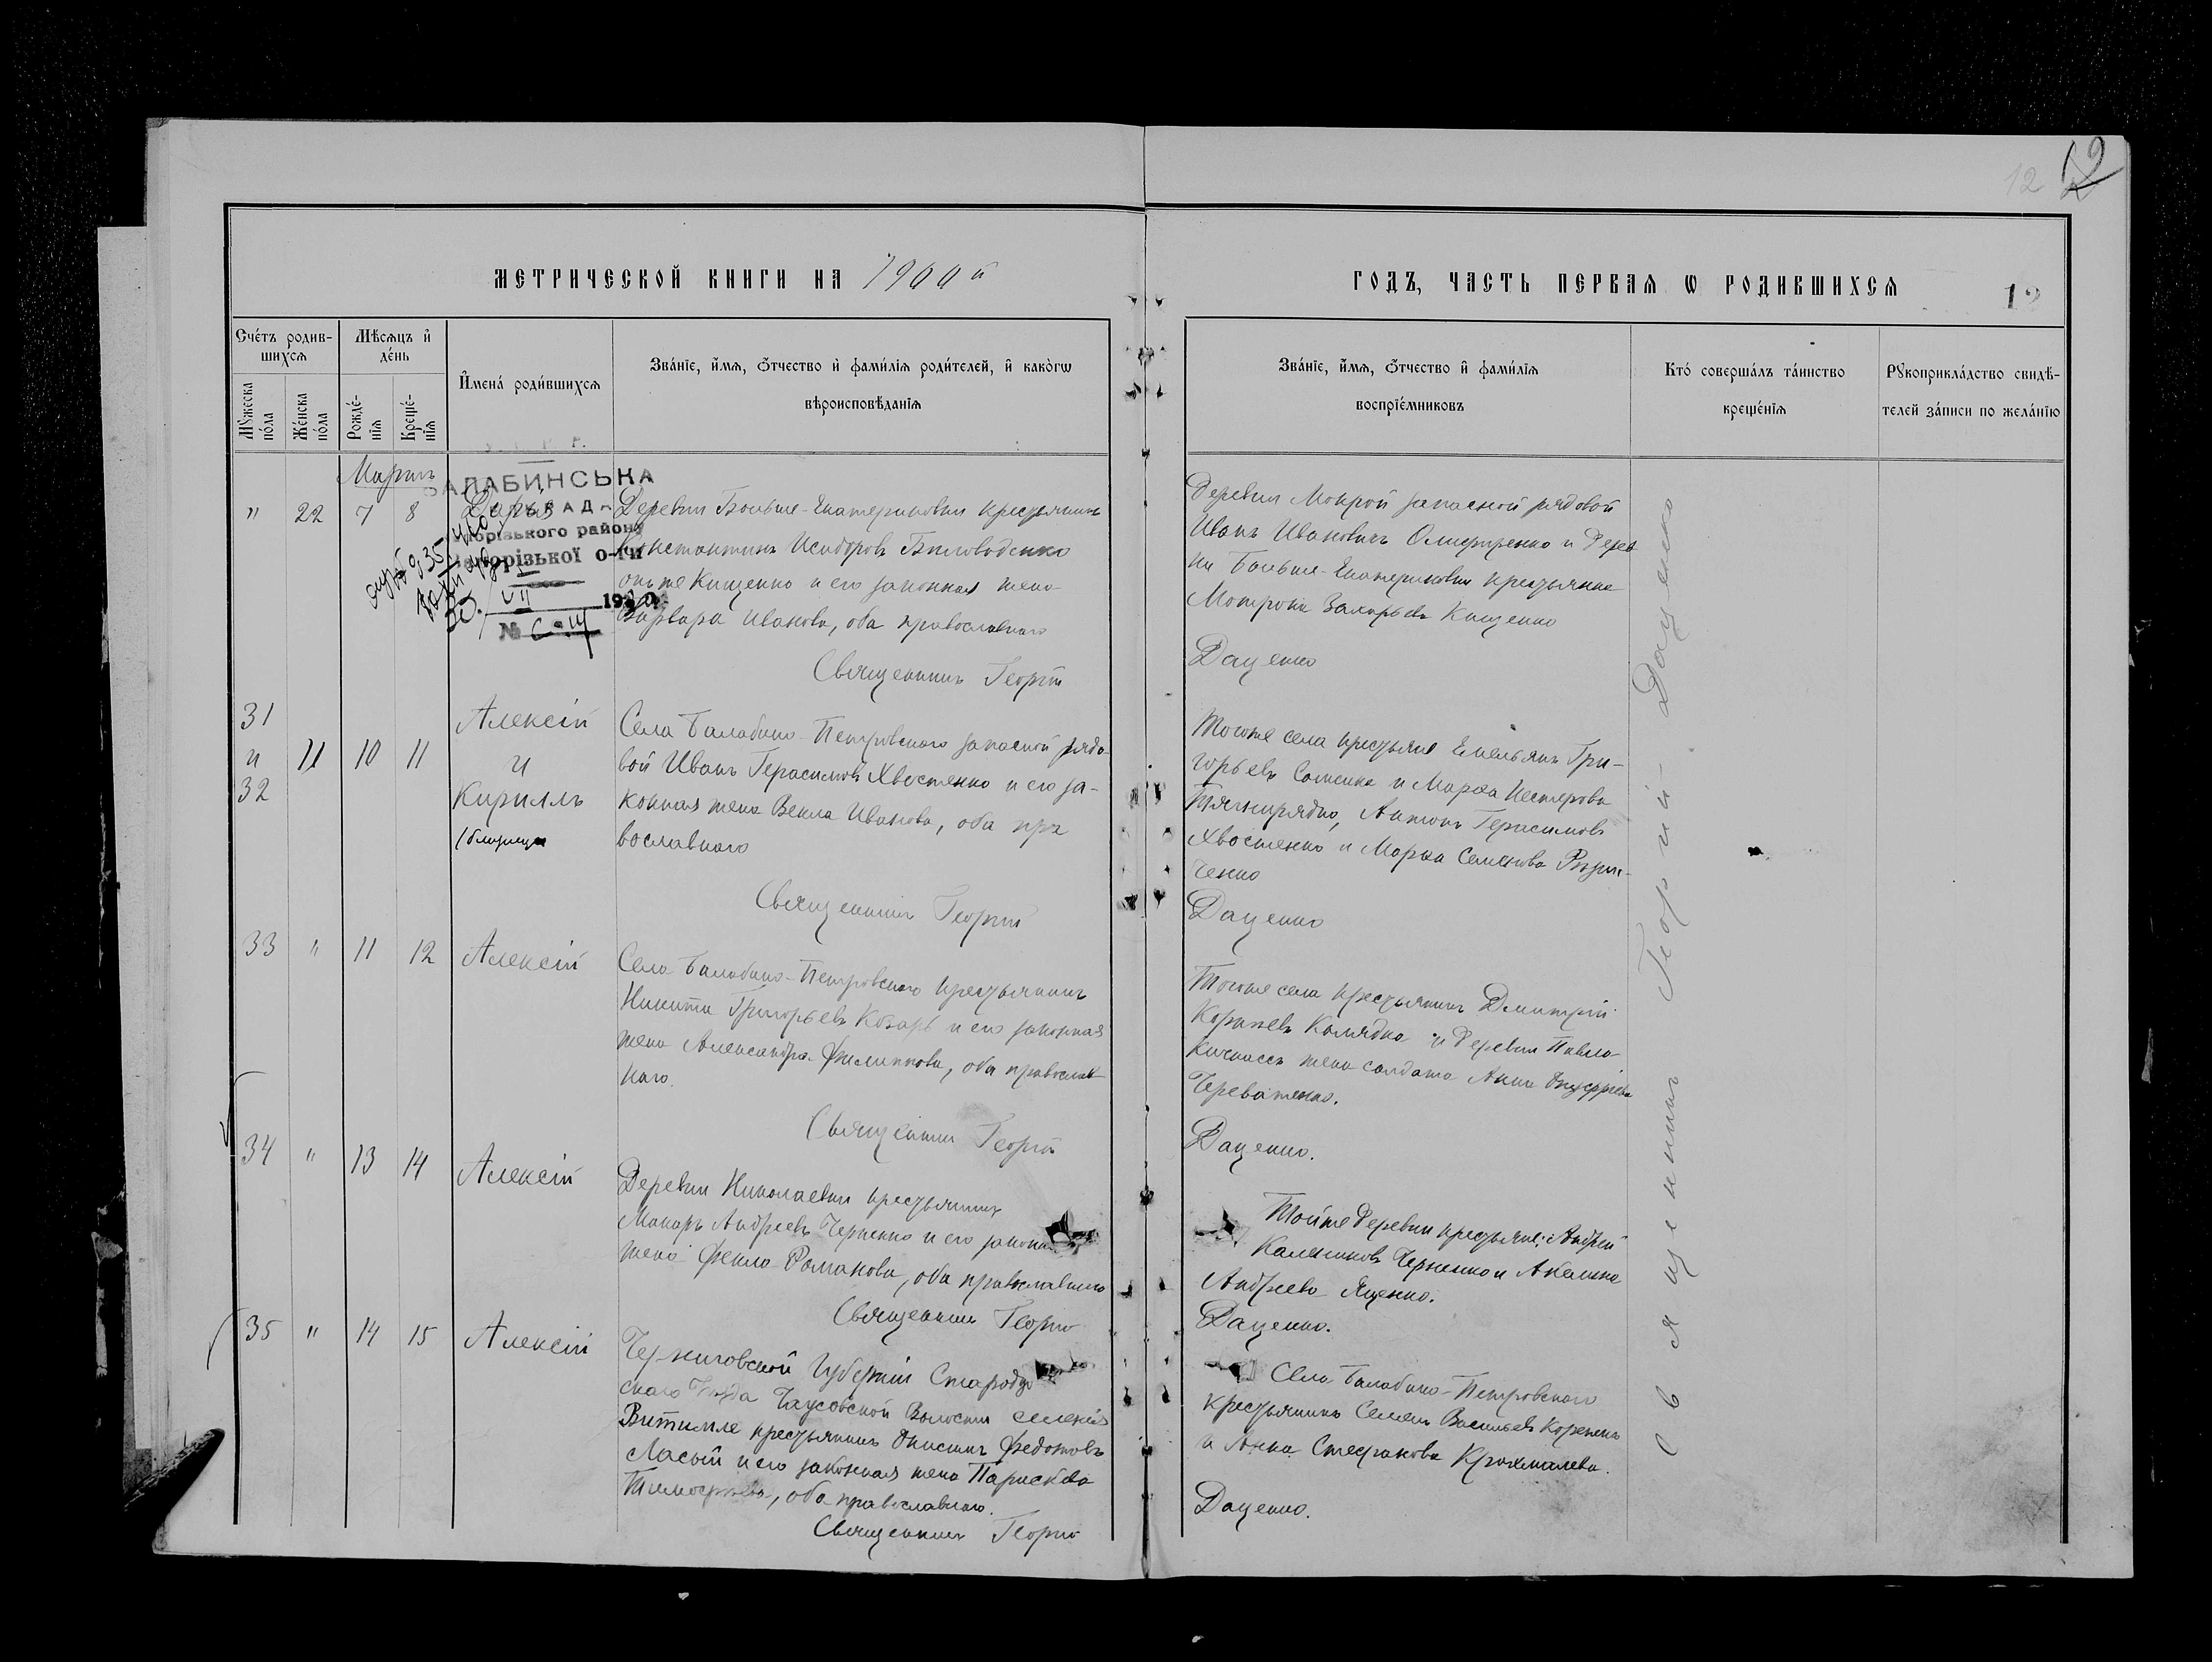 12
МЕТРИЧЕСКОЙ КНИГИ НА 1900й
ГОДЪ, ЧАСТЬ ПЕРВАЯ Ѡ РОДИВШИХСЯ
12
Счетъ родив-
шихся
Мужеска
пола
Женска
пола
Мѣсяцъ и
день
Рожде-
нія
Креще-
нія
Имена родившихся
Званіе, имя, отчество и фамилія родителей, и какогѡ
вѣроисповѣданія
Званіе, имя, отчество и фамилія
воспріемниковъ
Кто совершалъ таинство
крещенія
Рукоприкладство свидѣ-
телей записи по желанію
Мартъ
БАЛАБИНСЬКА
Запорізького району
Запорізької о-ти
VII
№
" 22 7 8 Дарія
Деревни Больше-Екатериновки крестьянинъ
Константинъ Исидоровъ Биловоденко
онъ же Кищенко и его законная жена
Варвара Иванова, оба православнаго
Священникъ Георгій
Деревни Мокрой запасной рядовой
Иванъ Ивановичъ и Дерев
ни Больше-Екатериновки крестьянка
Мотрона Захарьева Кищенко
Даценко
31
и 11 10 11
32
Алексій
и
Кириллъ
(близнецы
Села Балабино-Петровскаго запасной рядо-
вой Иванъ Герасимовъ Хвостенко и его за-
конная жена Векла Иванова, оба пра
вославнаго
Священникъ Георгій
Тогоже села крестьяне Емельянъ Гри-
горьевъ и Марѳа Нестерова
Тягнирядно, Антонъ Герасимовъ
Хвостенко и Марѳа Семенова
ченко
Даценко
33 " 11 12 Алексій
Села Балабино-Петровскаго крестьянинъ
Никита Григорьевъ Козарь и его законная
жена Александра Филиппова, оба православ
наго.
Священникъ Георгій
Тогоже села крестьянинъ Димитрій
Корнѣевъ Колядка и Деревни Павло-
Кичкасъ жена солдата Анна Онуфріева
Череватенко.
Даценко.
34 " 13 14 Алексій
Деревни Николаевки крестьянинъ
Макаръ Андреевъ Черненко и его законна
жена Фекла Романова, оба православнаго
Священникъ Георгій
Тойже деревни крестьяне: Андрей
Калениковъ Черненко и Акилина
Андреева Яценко.
Даценко.
35 " 14 15 Алексій
Черниговской Губерніи Стародуб
скаго Уѣзда Чаусовской Волости селенія
Витимле крестьянинъ Онисимъ Федотовъ
Ласый и его законная жена Параскева
Тимофѣева, оба православнаго.
Священникъ Георгій
Села Балабино-Петровскаго
крестьянинъ Семенъ Васильевъ Коренекъ
и Анна Стефанова Крохмалева.
Даценко.
Священникъ Георгій Даценко